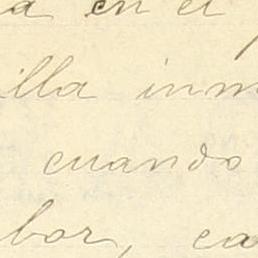 a en el
illa inm
cuando
bor, ca